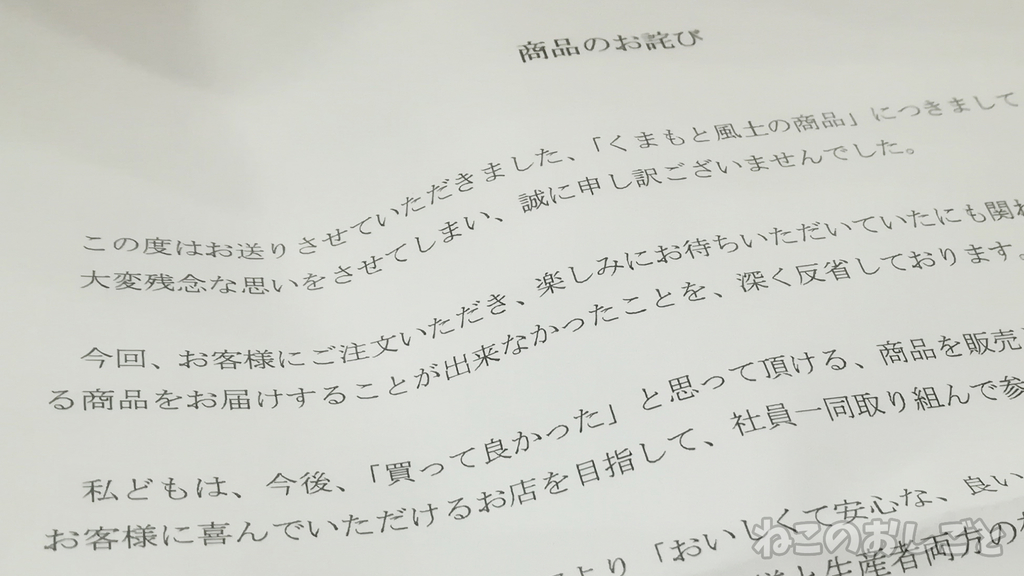 商品のお詫び
この度はお送りさせていただきました、「くまもと風土の商品」につきまして
大変残念な思いをさせてしまい、誠に申し訳ございませんでした。
今回、お客様にご注文いただき、楽しみにお待ちいただいていたにも関わ
る商品をお届けすることが出来なかったことを、深く反省しております。
私どもは、今後、「買って良かった」と思って頂ける、商品を販売
お客様に喜んでいただけるお店を目指して、社員一同取り組んで参
より「おいしくて安心な、良い
と生産者両方の
ねこのおしごと